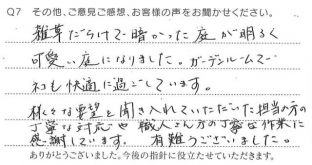 Q7 その他、ご意見ご感想、お客様の声をお聞かせください。
雑草だらけで暗かった庭が明るく
可愛い庭になりました。ガーデンルームで
ネコも快適に過ごしています。
様々な要望を聞き入れていただいた担当の方の
丁寧な対応や職人さん方の丁寧な作業に
感謝しています。 有難うございました。
ありがとうございました。今後の指針に役立たせていただきます。